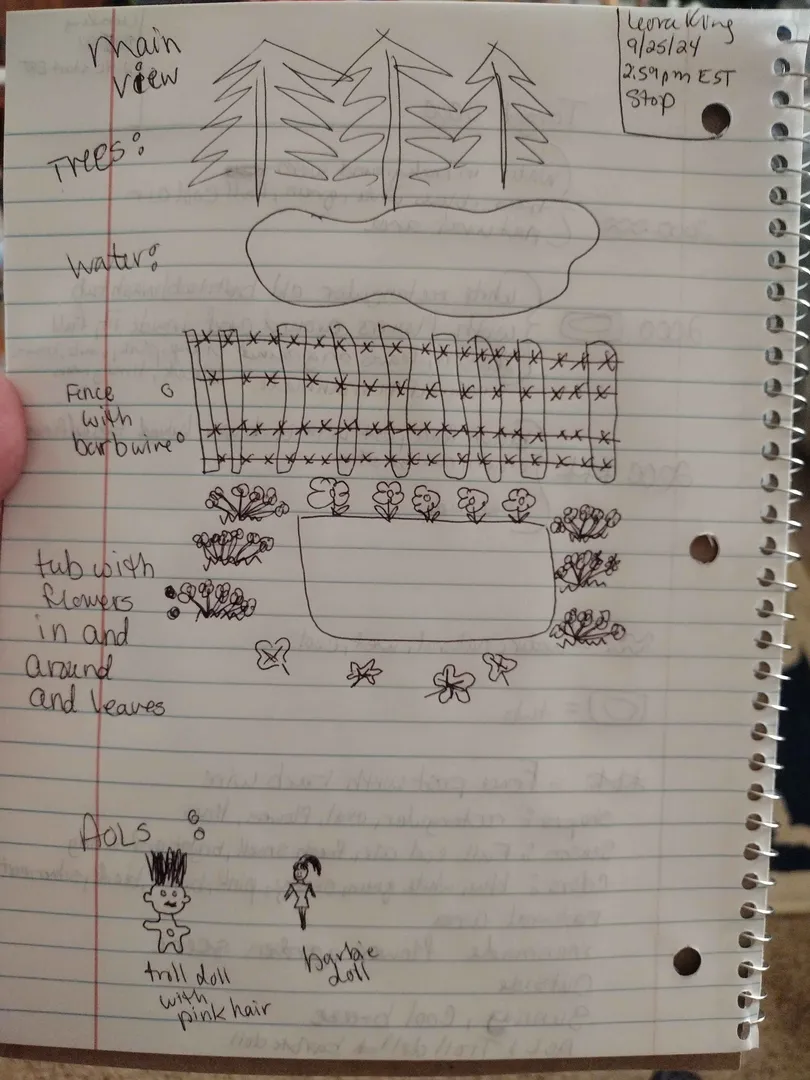 main
view
Leora King
9/25/24
2:59pm EST
Stop
Trees:
water:
Fence
with
barbwire
tub with
flowers
in and
around
and leaves
AOLS :
troll doll
with
pink hair
barbie
doll